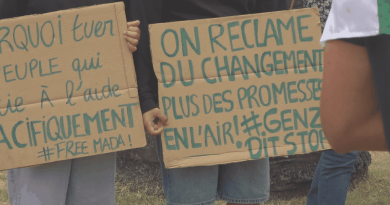 RQUOI tuer
EUPLE qui
ie À l'aide
ACIFIQUEMENT
#FREE MADA!
ON RECLAME
DU CHANGEMENT
PLUS DES PROMESSES
EN L'AIR! #GENZ
DIT STOP